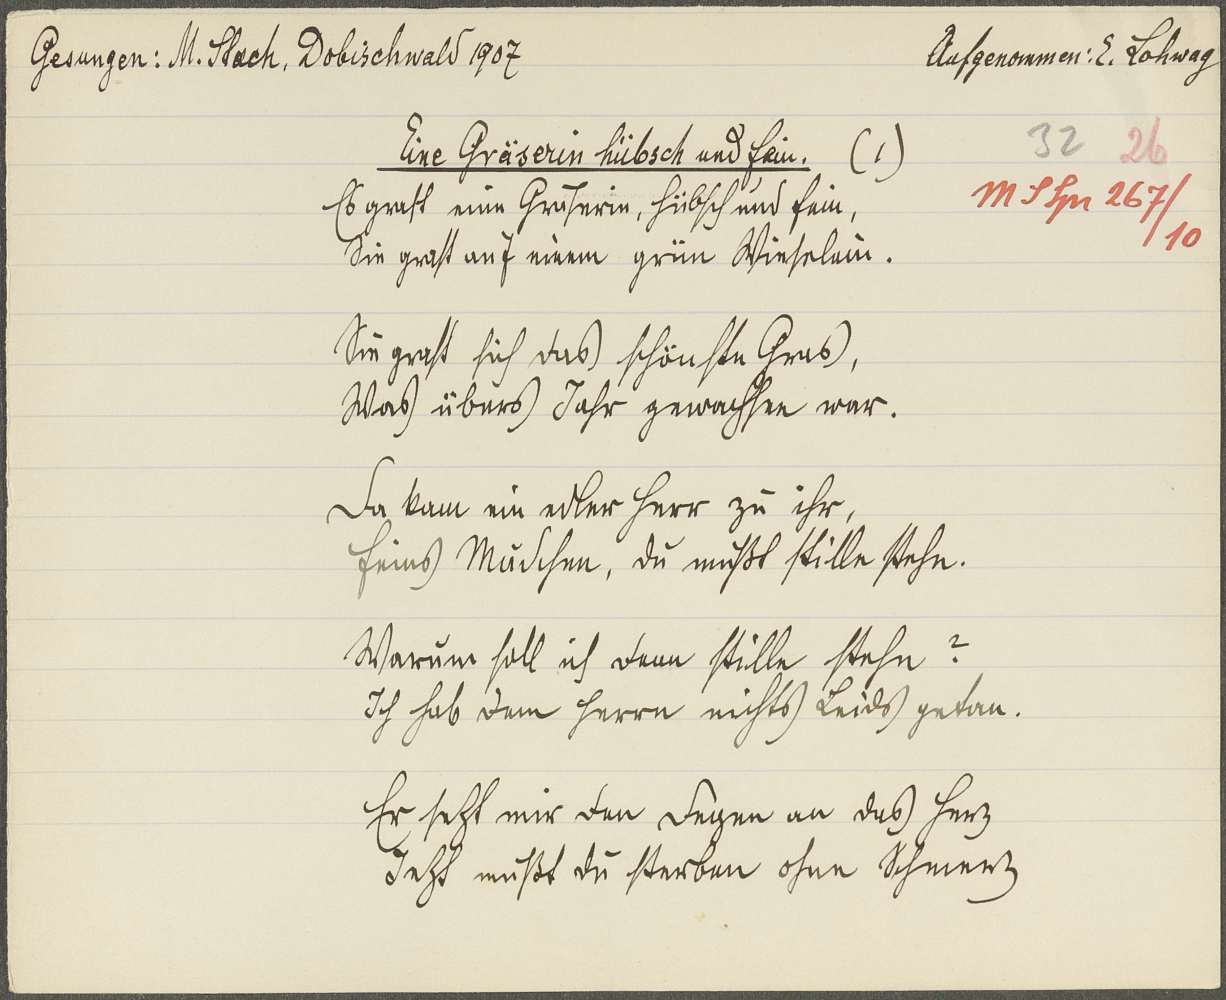 Gesungen: M. Stach, Dobischwald 1907
Aufgenommen: E. Lohwag
Eine Gräserin hübsch und fein. (1)
32 26
267/
10
Es grast eine Graserin, hübsch und fein,
Sie grast auf einem grün Wieselein.
Sie grast sich das schönste Gras,
Was übers Jahr gewachsen war.
Da kam ein edler Herr zu ihr,
Feins Mädchen, du mußt stille stehn.
Warum soll ich denn stille stehn?
Ich hab dem Herrn nichts Leids getan.
Er setzt mir den Degen an das Herz
Jetzt mußt du sterben ohne Schmerz